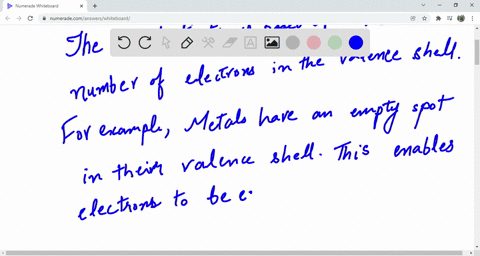 Numerade - Whiteboard
numerade.com/answers/whiteboard/
The
number of electrons in the valence shell.
For example, Metals have an empty spot
in their valence shell. This enables
electrons to be e